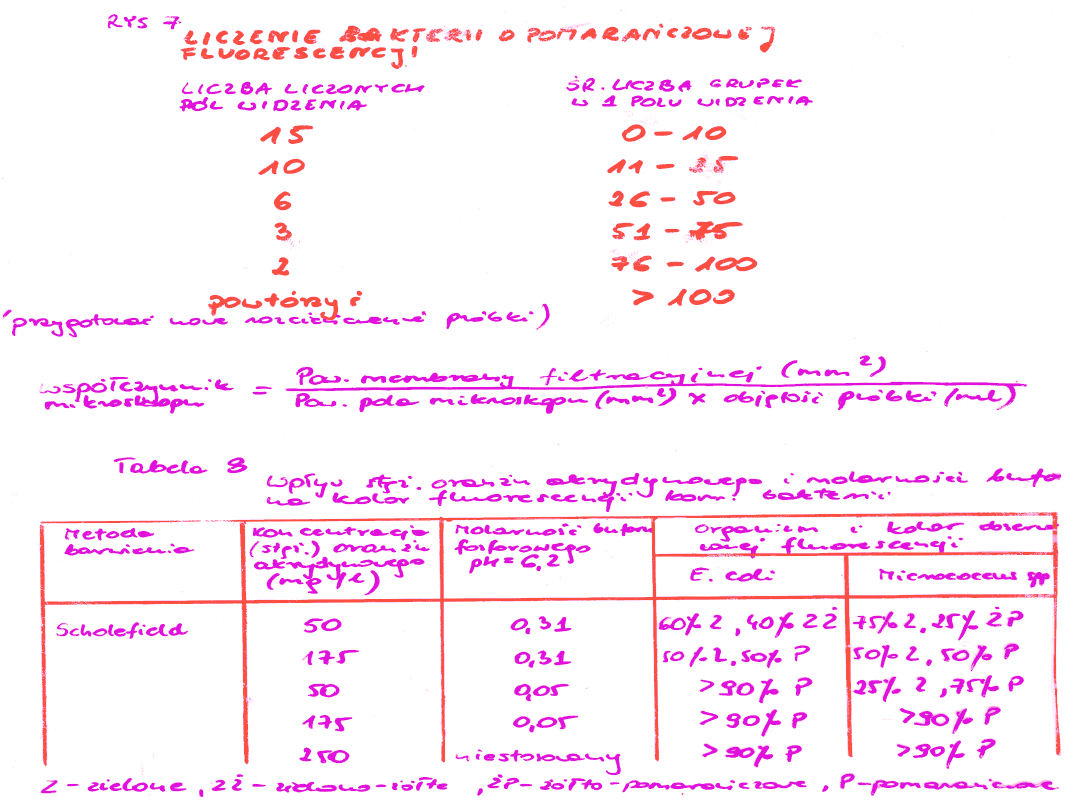 RYS 7
LICZENIE BAKTERII O POMARAŃCZOWEJ
FLUORESCENCJI
LICZBA LICZONYCH ŚR. LICZBA GRUPEK
PÓL WIDZENIA W 1 POLU WIDZENIA
15 0 - 10
10 11 - 25
6 26 - 50
3 51 - 75
2 76 - 100
powtórzyć > 100
(przygotować nowe rozcieńczenie próbki)
współczynnik mikroskopu = Pow. membrany filtracyjnej (mm²)
Pow. pola mikroskopu (mm²) x objętość próbki (ml)
Tabela 8
Wpływ stęż. oranżu akrydynowego i molarności bufo
na kolor fluorescencji kom. bakterii
Metoda barwienia
Koncentracja (stęż.) oranżu akrydynowego (mg/l)
Molarność buforu fosforowego pH=6,2
Organizm i kolor obserwowanej fluorescencji
E. coli Micrococcus spp
Scholefield 50 0,31 60% Z, 40% ZŻ 75% Z, 25% ŻP
175 0,31 50% Z, 50% P 50% Z, 50% P
50 0,05 >90% P 25% Z, 75% P
175 0,05 >90% P >90% P
250 niestosowany >90% P >90% P
Z - zielone, ZŻ - zielono-żółte, ŻP - żółto-pomarańczowe, P - pomarańczowe